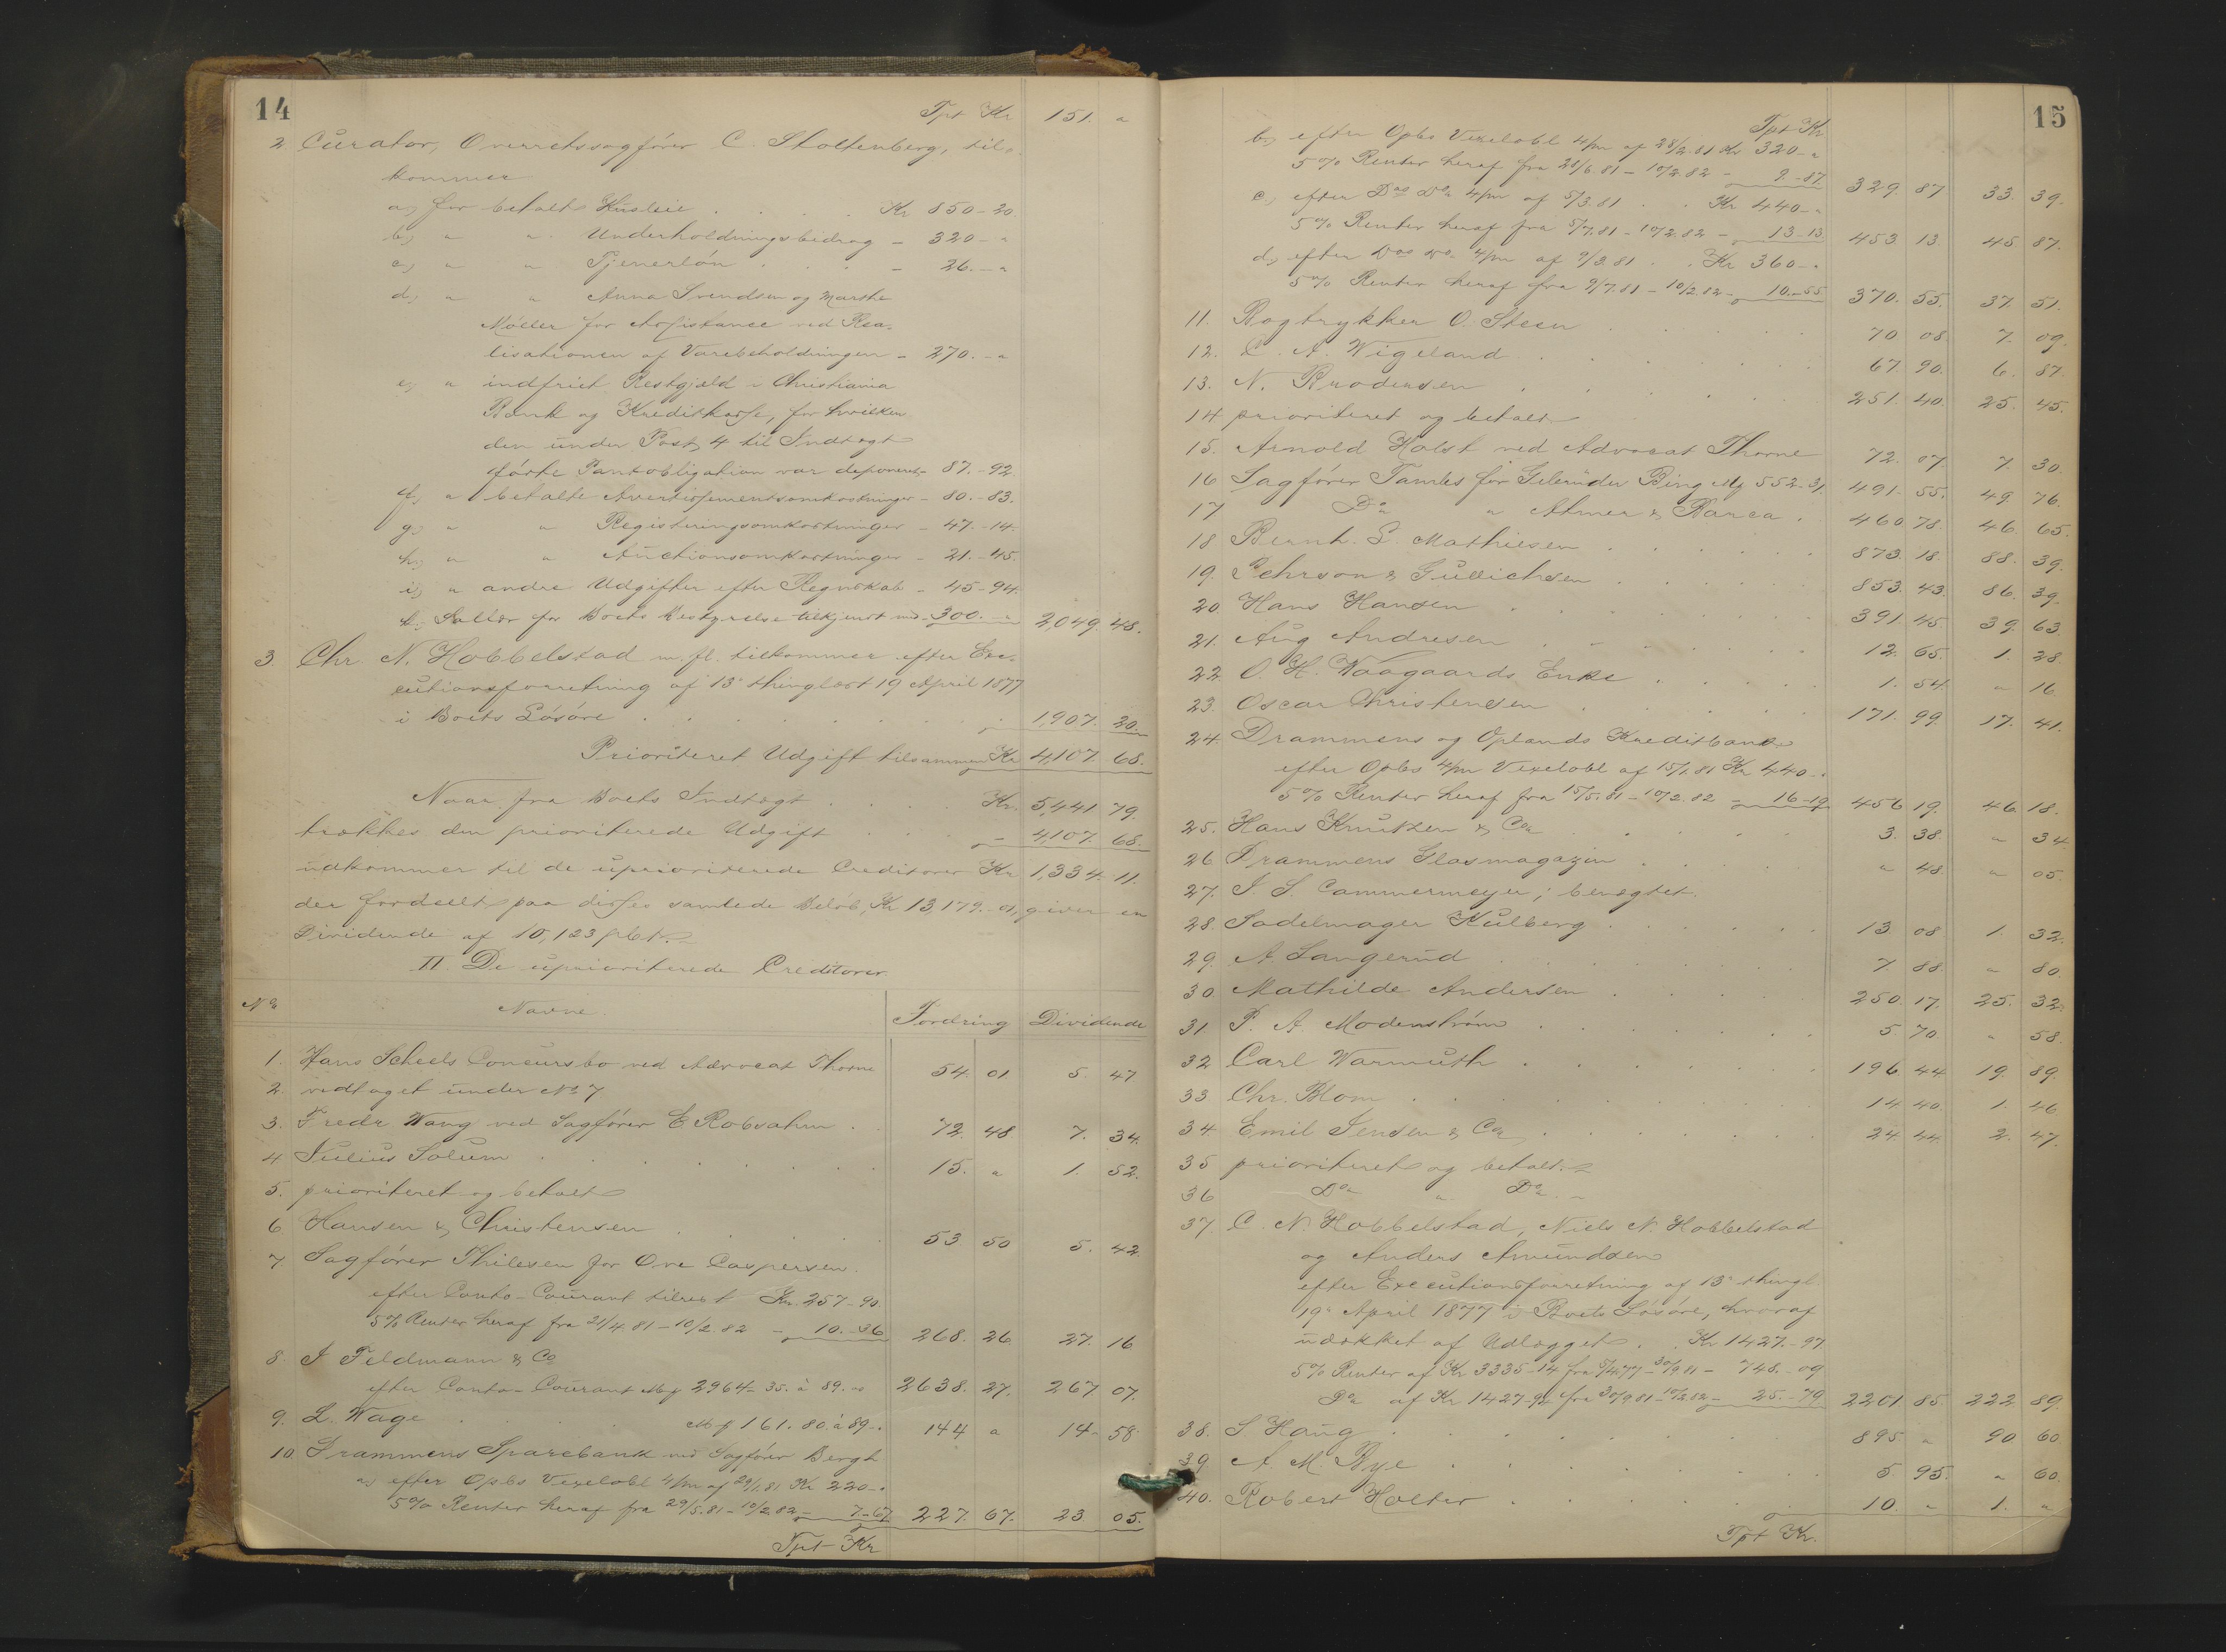 14
Tpt Kr 151. "
2 Curator, Overretssagfører C. Stoltenberg, til-
kommer
a, for betalt Husleie . . . Kr 850-20.
b, " " Underholdningsbidrag - 320-"
c, " " Tjenerløn . . . - 26.-"
d, " " Anna Svendsen og Marthe
Møller for Assistance ved Rea-
lisationen af Varebeholdningen - 270.-"
e, " indfriet Restgjæld i Christiania
Bank og Kreditkasse, for hvilken
den under Post 4 til Indtægt
førte Pantobligation var deponeret - 87.-92.
f, " betalte Avertissementsomkostninger - 80.-83.
g, " " Registreringsomkostninger - 47.-14.
h, " " Auctionsomkostninger - 21.-45.
i, " andre Udgifter efter Regnskab - 45-94.
k, Sallær for Boets Bestyrelse tilkjendt med - 300.-" 2,049. 48.
3. Chr. N. Hobbelstad m. fl. tilkommer efter Exe-
cutionsforretning af 13' thinglæst 19 April 1877
i Boets Løsøre . . . 1,907. 20.
Prioriteret Udgift tilsammen Kr 4,107. 68.
Naar fra Boets Indtægt . . . Kr. 5,441 79.
trækkes den prioriterede Udgift . . . - 4,107. 68.
udkommer til de uprioriterede Creditorer Kr 1,334. 11.
der fordeelt paa disses samlede Beløb, Kr 13,179.-01, giver en
Dividende af 10,123 pCt.
II. De uprioriterede Creditorer.
No Navne. Fordring Dividende
1. Hans Scheels Concursbo ved Advocat Thorne 54. 01 5. 47
2. vedtaget under No 7
3. Fredr. Wang ved Sagfører E Robsahm . . 72. 48 7. 34.
4 Julius Solum . . . 15. " 1. 52.
5. prioriteret og betalt
6 Hansen & Christensen . . . 53 50 5. 42
7 Sagfører Thilesen for Ove Caspersen.
efter Conto-Courant tilrest Kr. 257-90.
5% Renter heraf fra 21/4.81-10/2.82 - 10.-36 268. 26 27. 16
8. I Feldmann & Co
efter Conto-Courant Mf 2964-35. à 89.- 2638. 27. 267 07.
9. L. Wage . . . Mf 161.80. à 89.- 144 " 14- 58
10 Drammens Sparebank ved Sagfører Bergh
a, efter Opbs Vexelobl 4/m af 29/1.81 Kr 220-"
5% Renter heraf fra 29/5.81-10/2.82 - 7-67 227. 67. 23 05.
Tpt Kr
15
Tpt Kr
b, efter Opbs Vexelobl 4/m af 28/2.81 Kr 320-"
5% Renter heraf fra 28/6.81-10/2.82 - 9.-87. 329. 87 33. 39.
c, efter Do Do 4/m af 5/3.81 . . Kr 440-"
5% Renter heraf fra 5/7.81-10/2.82 - 13-13. 453. 13. 45. 87.
d, efter Do Do 4/m af 9/3.81 . . Kr 360-"
5% Renter heraf fra 9/7.81-10/2.82 - 10.-55. 370. 55. 37. 51.
11. Bogtrykker O. Steen . . . 70 08. 7. 09.
12. C. A. Wigeland . . . 67. 90. 6. 87.
13. N. Brodersen . . . 251. 40. 25. 45.
14 prioriteret og betalt
15. Arnold Holst ved Advocat Thorne 72. 07. 7. 30.
16 Sagfører Tambs for Gebrüder Bing Mf 552-31. 491. 55. 49. 76.
17 Do " Atmer & Barca . 460 78. 46. 65.
18 Bernh. L. Mathiesen . . . 873. 18. 88. 39.
19. Pehrson & Gullichsen . . . 853. 43. 86. 39.
20 Hans Hansen . . . 391. 45. 39. 63.
21. Aug Andresen . . . 12. 65. 1. 28
22. O. H. Waagaards Enke . . . 1. 54 " 16
23. Oscar Christensen . . . 171. 99. 17. 41.
24. Drammens og Oplands Kreditbank
efter Opbs 4/m Vexelobl af 15/1.81 Kr 440-"
5% Renter heraf fra 15/5.81-10/2.82 - 16-19. 456 19. 46. 18.
25. Hans Knutzen & Co . . . 3. 38. " 34
26 Drammens Glasmagazin . . . " 48. " 05
27. J. S. Cammermeyer; benægtet.
28. Sadelmager Kulberg . . . 13. 08 1. 32.
29. A. Langerud . . . 7 88. " 80.
30 Mathilde Andersen . . . 250. 17. 25. 32.
31. P. A. Modenstrøm . . . 5. 70. " 58.
32 Carl Warmuth . . . 196. 44 19. 89.
33 Chr. Blom . . . 14. 40. 1. 46
34 Emil Jensen & Co . . . 24. 44. 2. 47.
35 prioriteret og betalt.
36 Do " Do
37. C. N. Hobbelstad, Niels N. Hobbelstad
og Anders Amundsen
efter Executionsforretning af 13' thingl
19' April 1877 i Boets Løsøre, hvoraf
udækket af Udlægget . . Kr 1427.-97
5% Renter af Kr 3335-14 fra 5/4.77-30/9 81 - 748.-09
Do af Kr 1427-92 fra 30/9 81-10/2.82 - 25.-79 2201 85. 222 89.
38. S Haug . . . 895. " 90. 60
39. A. M. Bye . . . 5. 95. " 60.
40. Robert Holter . . . 10. " 1. "
Tpt Kr.